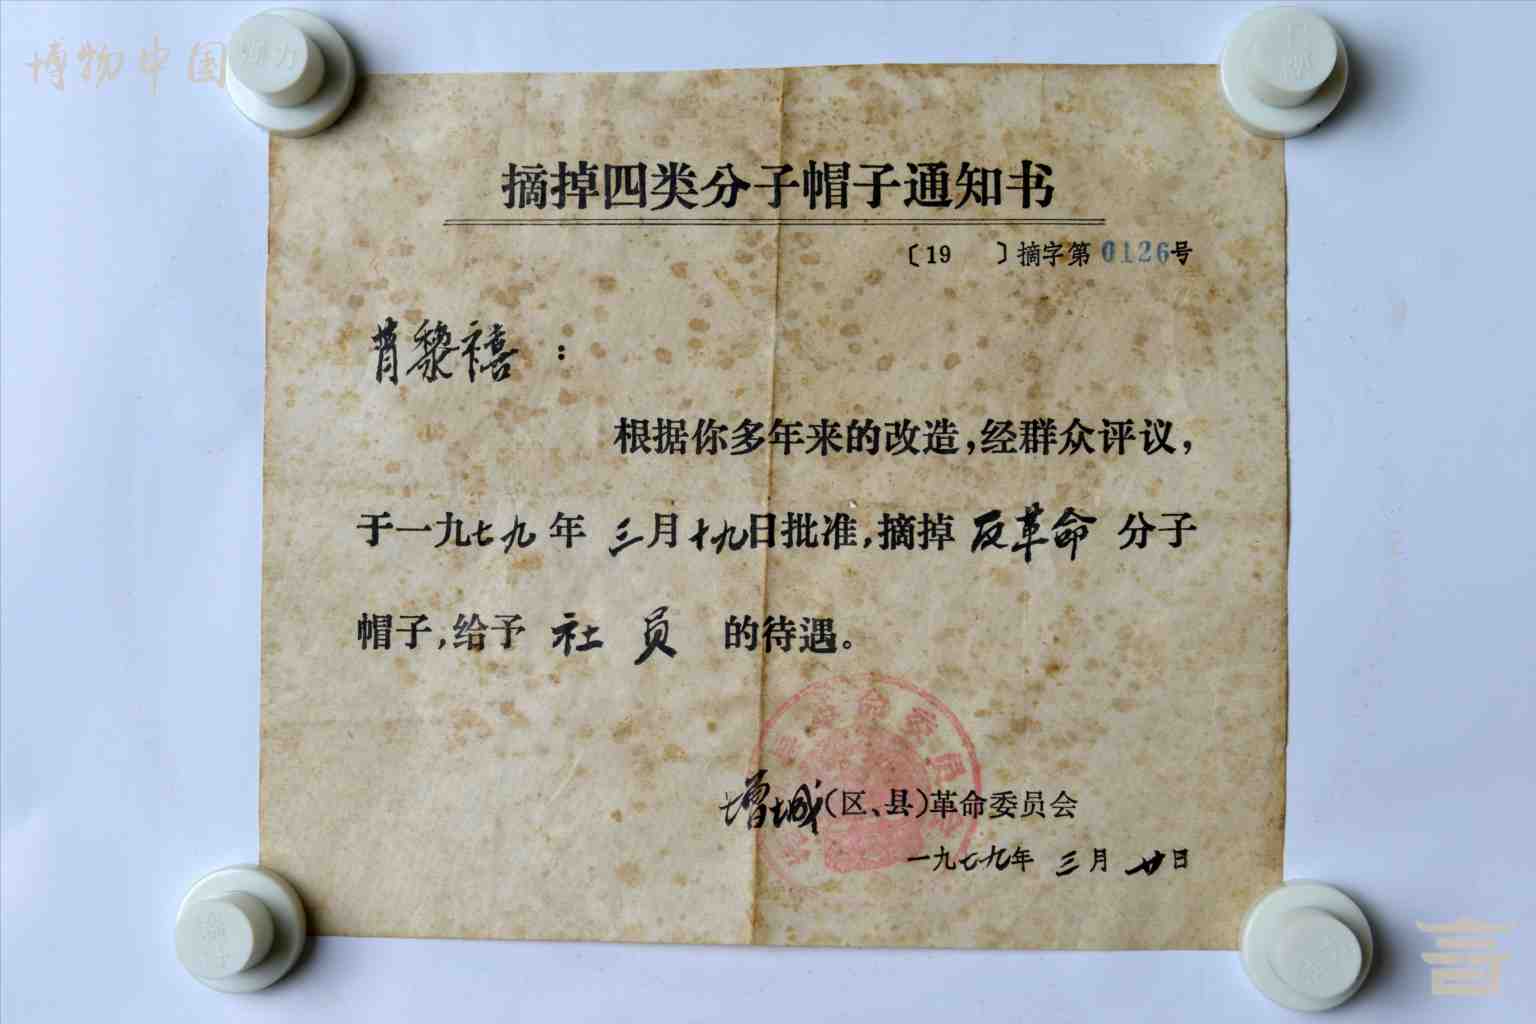 博物中国
摘掉四类分子帽子通知书
〔19 〕摘字第 0126号
肖黎禧：
根据你多年来的改造，经群众评议，
于一九七九年 三月十九日批准，摘掉 反革命 分子
帽子，给予 社员 的待遇。
县革命委员会
增城（区、县）革命委员会
一九七九年 三月廿日